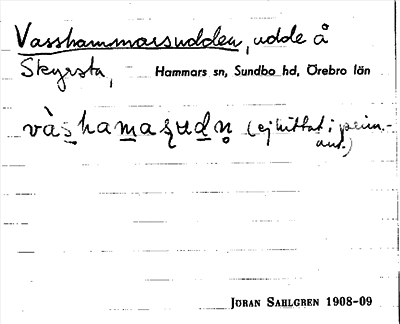 Vasshammarsudden, udde å
Skyrsta, Hammars sn, Sundbo hd, Örebro län
vàshamaʂudn̥ (ej hittat i prim.-
ant.)
JÖRAN SAHLGREN 1908-09